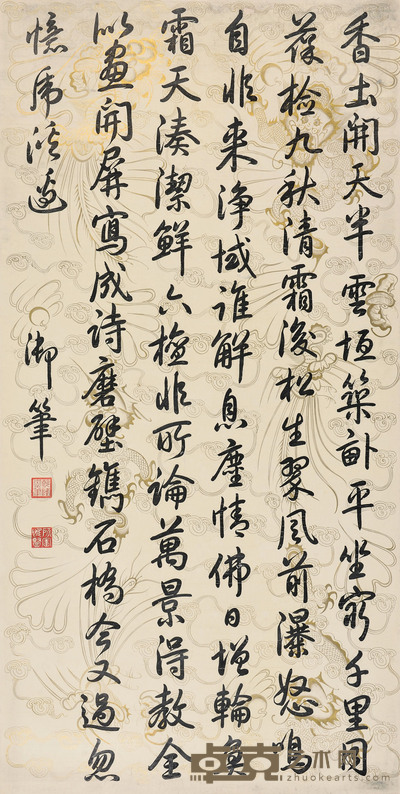 香土開天半雲垣築畝平坐窮千里目
檢九秋清霜後松生翠風前瀑怒鳴
自非来淨域誰解息塵情佛日增輪奐
霜天湊潔鮮六非所論萬景得教全
似畫開屏寫成詩磨壁鐫石橋今又過忽
憶虎溪邊
御筆
卓克艺术网
www.zhuokearts.com